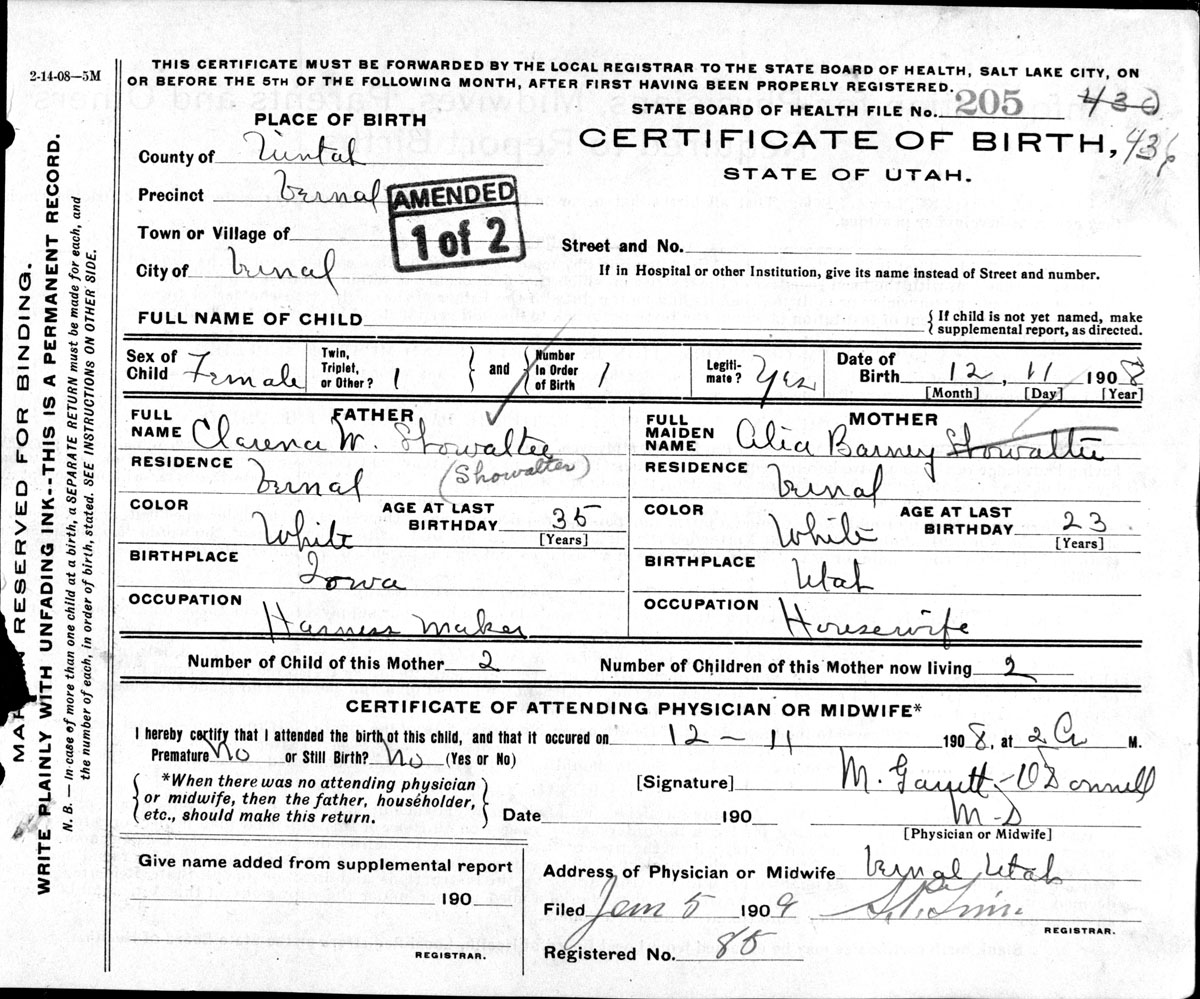 2-14-08—5M
THIS CERTIFICATE MUST BE FORWARDED BY THE LOCAL REGISTRAR TO THE STATE BOARD OF HEALTH, SALT LAKE CITY, ON
OR BEFORE THE 5TH OF THE FOLLOWING MONTH, AFTER FIRST HAVING BEEN PROPERLY REGISTERED.
STATE BOARD OF HEALTH FILE No. 205 430
PLACE OF BIRTH
CERTIFICATE OF BIRTH, 436
STATE OF UTAH.
County of Uintah
Precinct Vernal
AMENDED
1 of 2
Town or Village of
Street and No.
City of Vernal
If in Hospital or other Institution, give its name instead of Street and number.
FULL NAME OF CHILD
{ If child is not yet named, make
{ supplemental report, as directed.
Sex of Child Female
Twin, Triplet, or Other? 1
and
Number In Order of Birth 1
Legiti-mate? Yes
Date of Birth 12, 11 1908
[Month] [Day] [Year]
FATHER
FULL NAME Clarence W. Showalter
(Showalter)
RESIDENCE Vernal
COLOR White
AGE AT LAST BIRTHDAY 35
[Years]
BIRTHPLACE Iowa
OCCUPATION Harness Maker
MOTHER
FULL MAIDEN NAME Barney Showalter
RESIDENCE Vernal
COLOR White
AGE AT LAST BIRTHDAY 23
[Years]
BIRTHPLACE Utah
OCCUPATION Housewife
Number of Child of this Mother 2
Number of Children of this Mother now living 2
CERTIFICATE OF ATTENDING PHYSICIAN OR MIDWIFE*
I hereby certify that I attended the birth of this child, and that it occured on 12 - 11 1908, at 2 a M.
Premature No or Still Birth? No (Yes or No)
*When there was no attending physician
or midwife, then the father, householder,
etc., should make this return.
[Signature] M. Garrett O'Donnell
Date 190
M-D
[Physician or Midwife]
Give name added from supplemental report
190
REGISTRAR.
Address of Physician or Midwife Vernal Utah
Filed Jan 5 1909
REGISTRAR.
Registered No. 85
MARGIN RESERVED FOR BINDING.
WRITE PLAINLY WITH UNFADING INK--THIS IS A PERMANENT RECORD.
N. B. — In case of more than one child at a birth, a SEPARATE RETURN must be made for each, and
the number of each, in order of birth, stated. SEE INSTRUCTIONS ON OTHER SIDE.